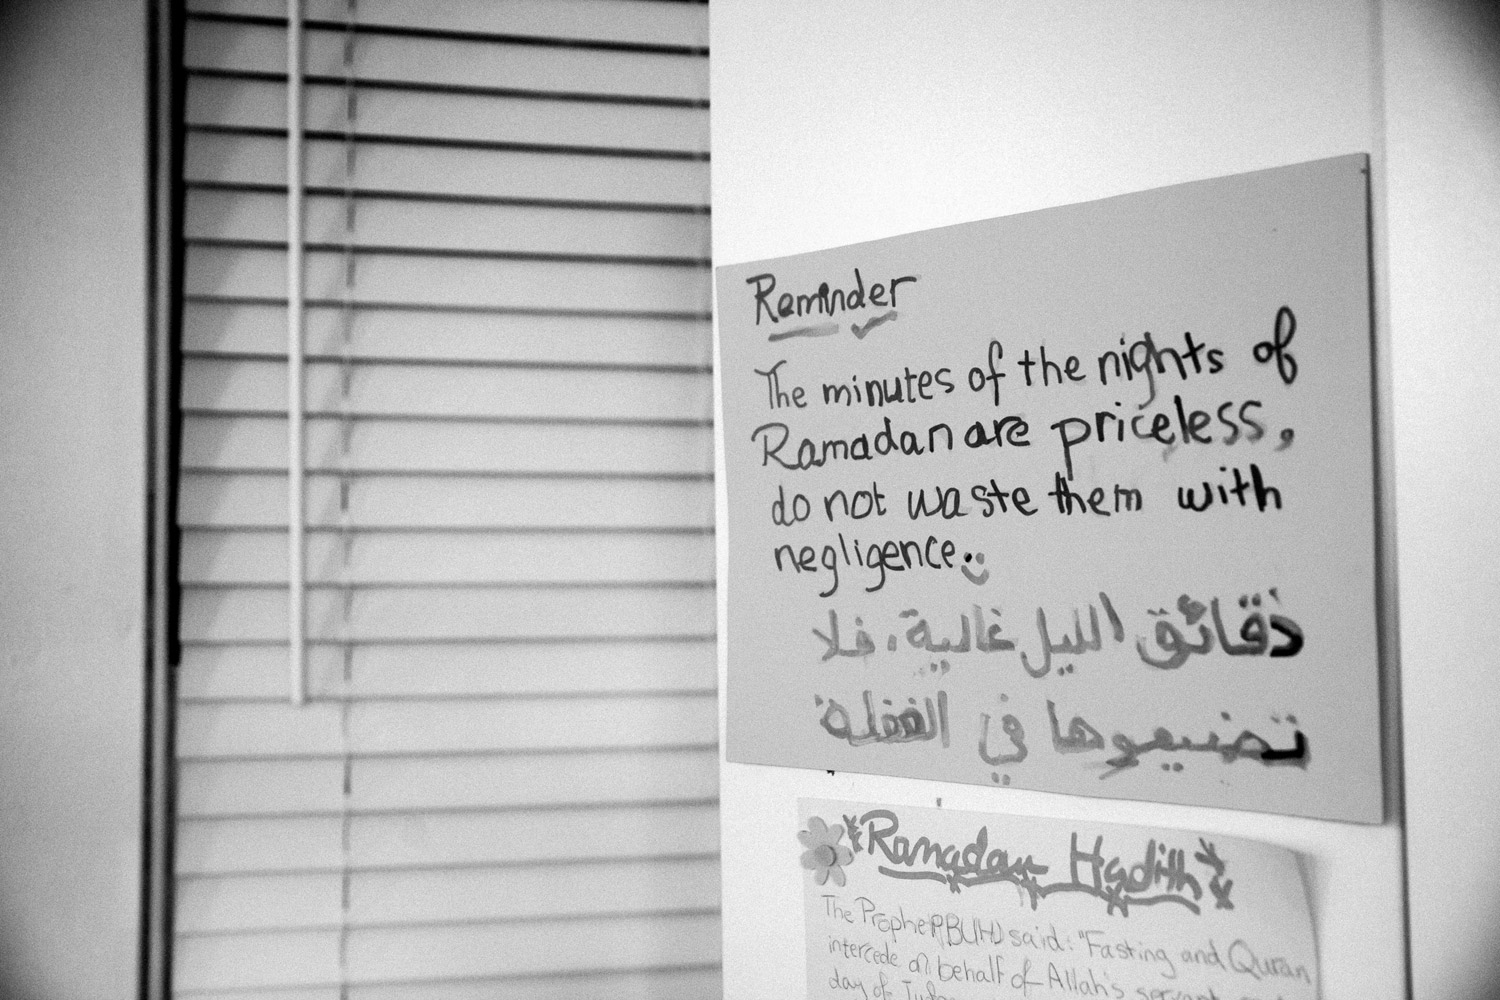 Reminder
The minutes of the nights of
Ramadan are priceless,
do not waste them with
negligence.
دقائق الليل غالية، فلا
تضيعوها في الغفلة
Ramadan Hadith
The Prophet(PBUH) said: "Fasting and Quran
intercede on behalf of Allah's servant
day of